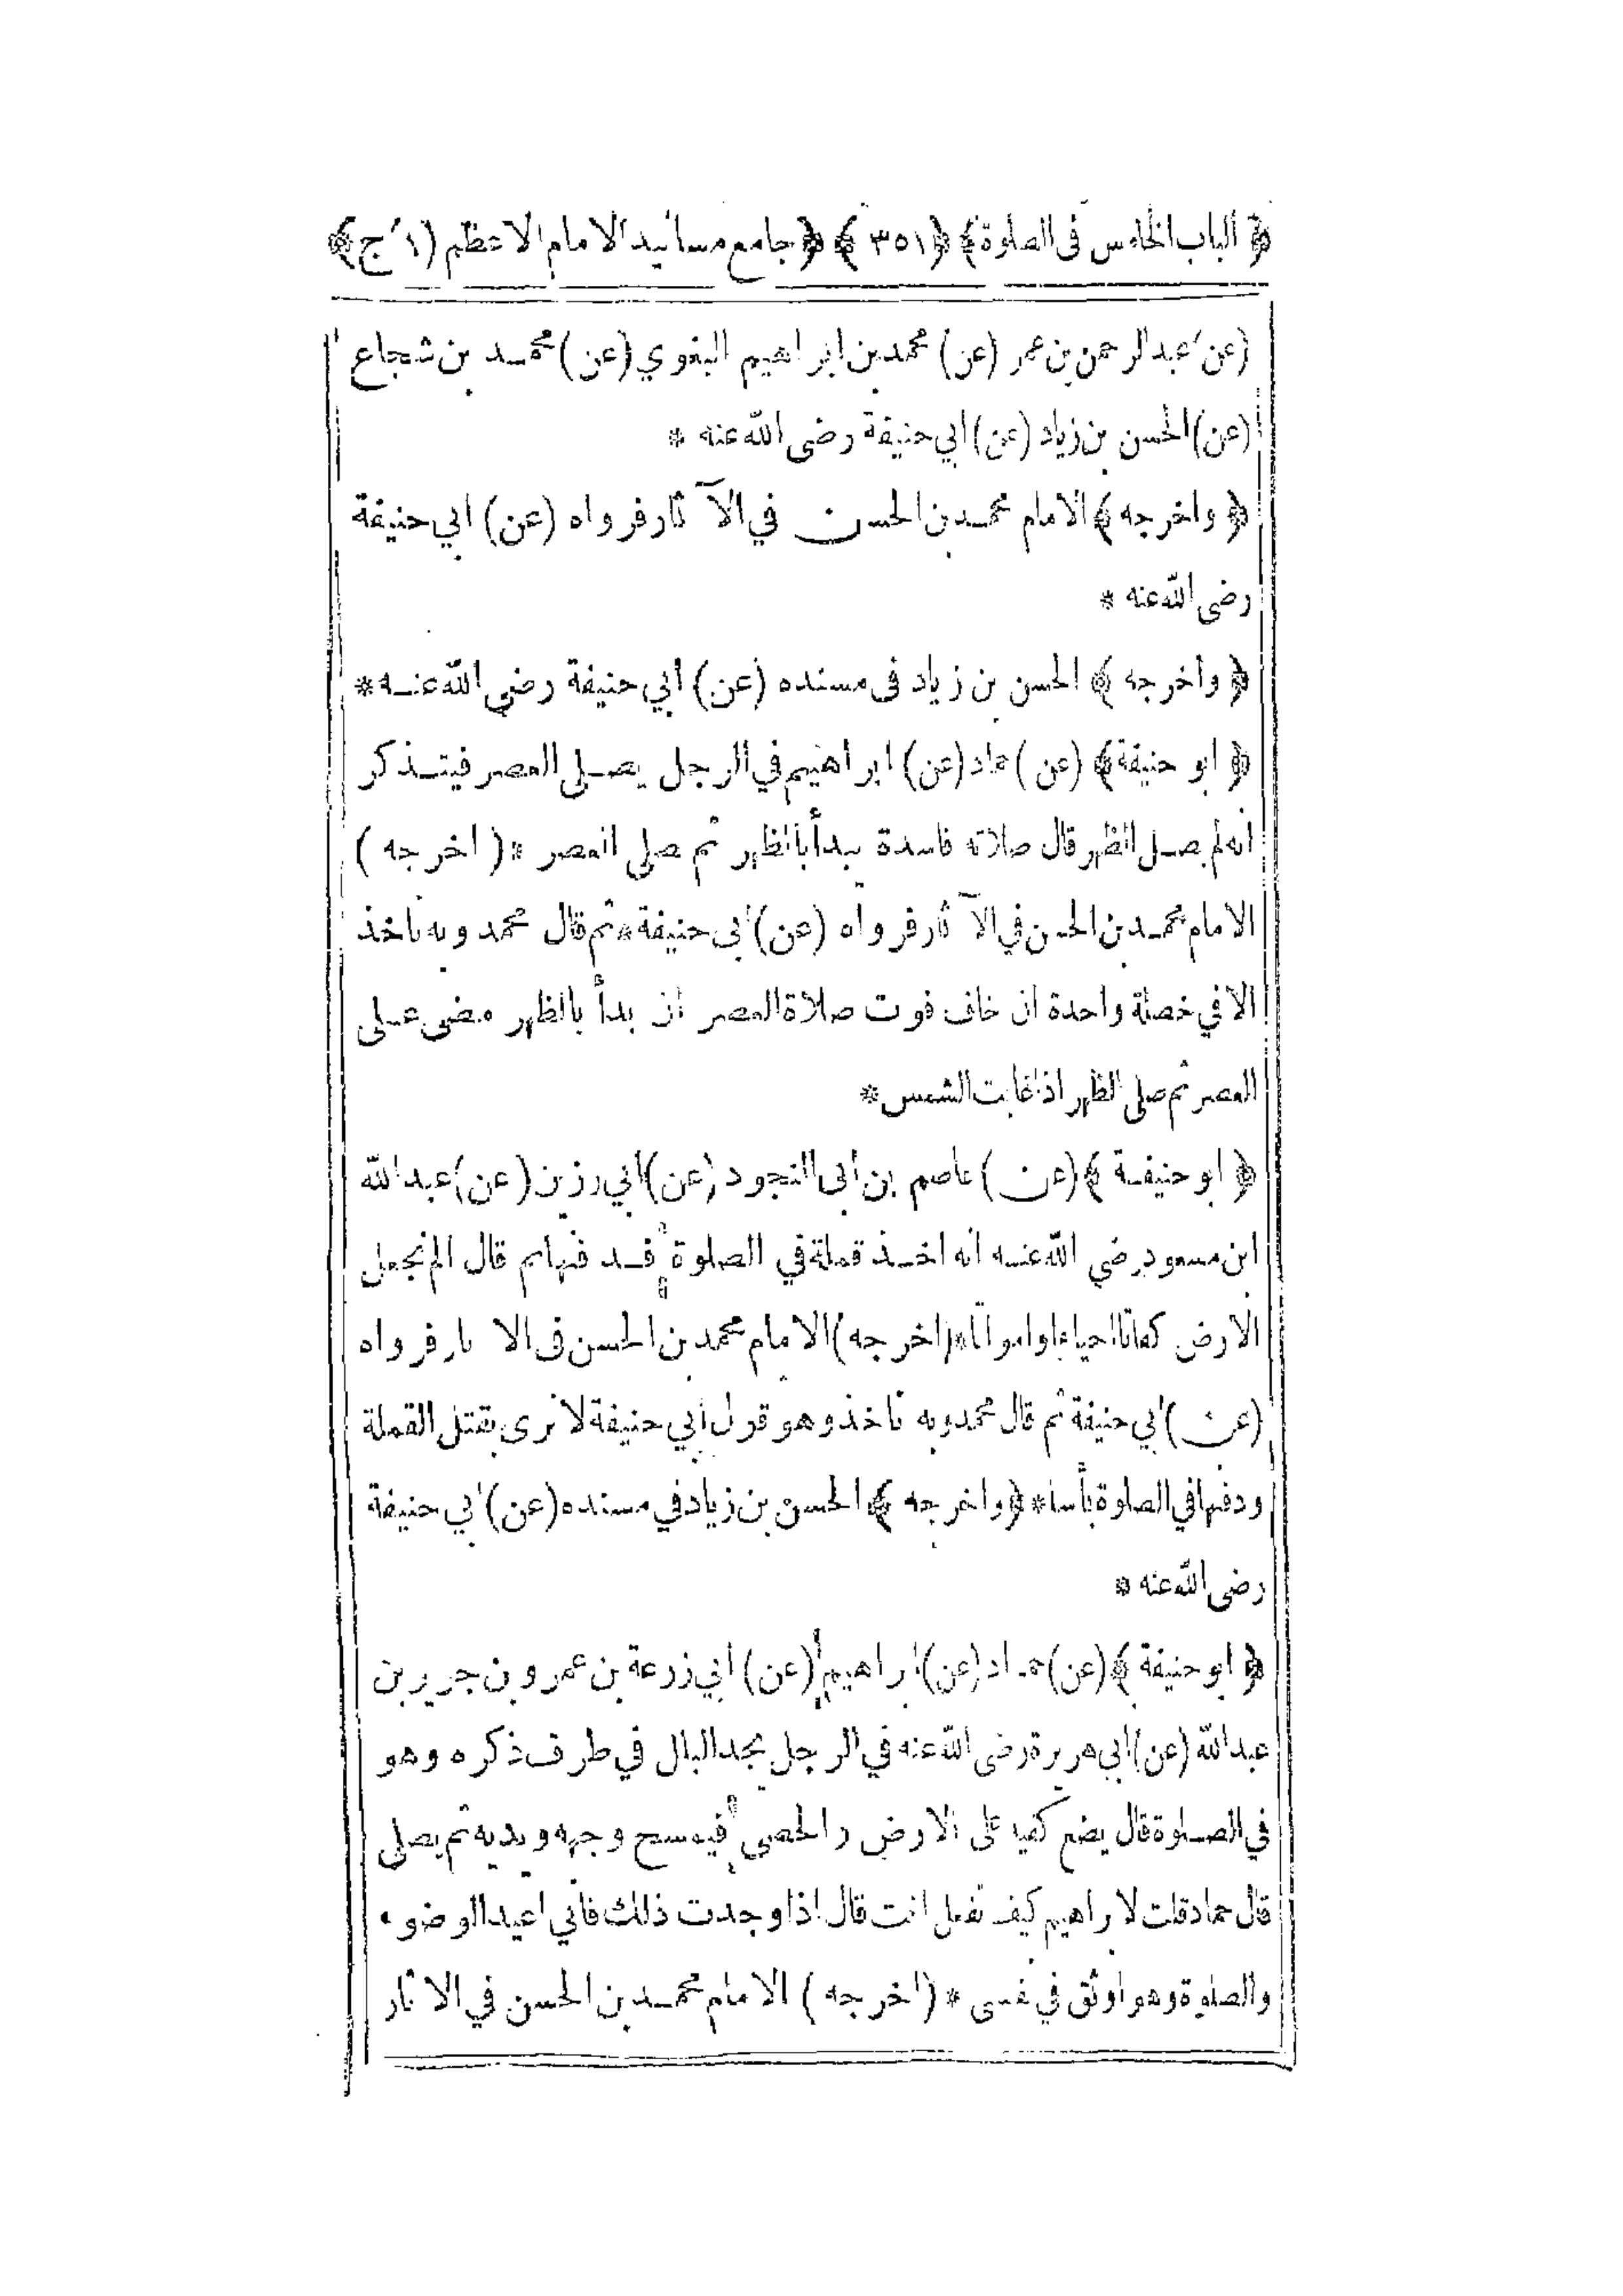 ﴿ الباب الخامس في الصلوة ﴾ ﴿ ٣٥١ ﴾ ﴿ جامع مسانيد الامام الاعظم (١ ج) ﴾
(عن) عبد الرحمن بن عمر (عن) محمد بن ابراهيم البغوي (عن) محمد بن شجاع
(عن) الحسن بن زياد (عن) ابي حنيفة رضى الله عنه *
﴿ واخرجه ﴾ الامام محمد بن الحسن في الآثار فرواه (عن) ابي حنيفة
رضى الله عنه *
﴿ واخرجه ﴾ الحسن بن زياد فى مسنده (عن) أبي حنيفة رضي الله عنه *
﴿ ابو حنيفة ﴾ (عن) حماد (عن) ابراهيم في الرجل يصلى العصر فيتذكر
انه لم يصل الظهر قال صلاته فاسدة يبدأ بالظهر ثم صلى العصر * (اخرجه)
الامام محمد بن الحسن في الآثار فرواه (عن) ابى حنيفة * ثم قال محمد وبه ناخذ
الا في خصلة واحدة ان خاف فوت صلاة العصر ان بدأ بالظهر مضى على
العصر ثم صلى الظهر اذا غابت الشمس *
﴿ ابو حنيفة ﴾ (عن) عاصم بن ابى النجود (عن) ابي رزين (عن) عبد الله
ابن مسعود رضي الله عنه انه اخذ قملة في الصلوة فدفنها ثم قال الم نجعل
الارض كفاتا احياء او امواتا * (اخرجه) الامام محمد بن الحسن فى الاثار فرواه
(عن) ابي حنيفة ثم قال محمد وبه ناخذ وهو قول أبي حنيفة لا نرى بقتل القملة
ودفنها في الصلوة بأسا * ﴿ واخرجه ﴾ الحسن بن زياد في مسنده (عن) ابي حنيفة
رضى الله عنه *
﴿ ابو حنيفة ﴾ (عن) حماد (عن) ابراهيم (عن) ابي زرعة بن عمرو بن جرير بن
عبد الله (عن) ابي هريرة رضى الله عنه في الرجل يجد البلل في طرف ذكره وهو
في الصلوة قال يضع كفيه على الارض والحصى فيمسح وجهه ويديه ثم يصلى
قال حماد قلت لابراهيم كيف تفعل انت قال اذا وجدت ذلك فانى اعيد الوضوء
والصلوة وهو اوثق في نفسى * (اخرجه) الامام محمد بن الحسن في الاثار